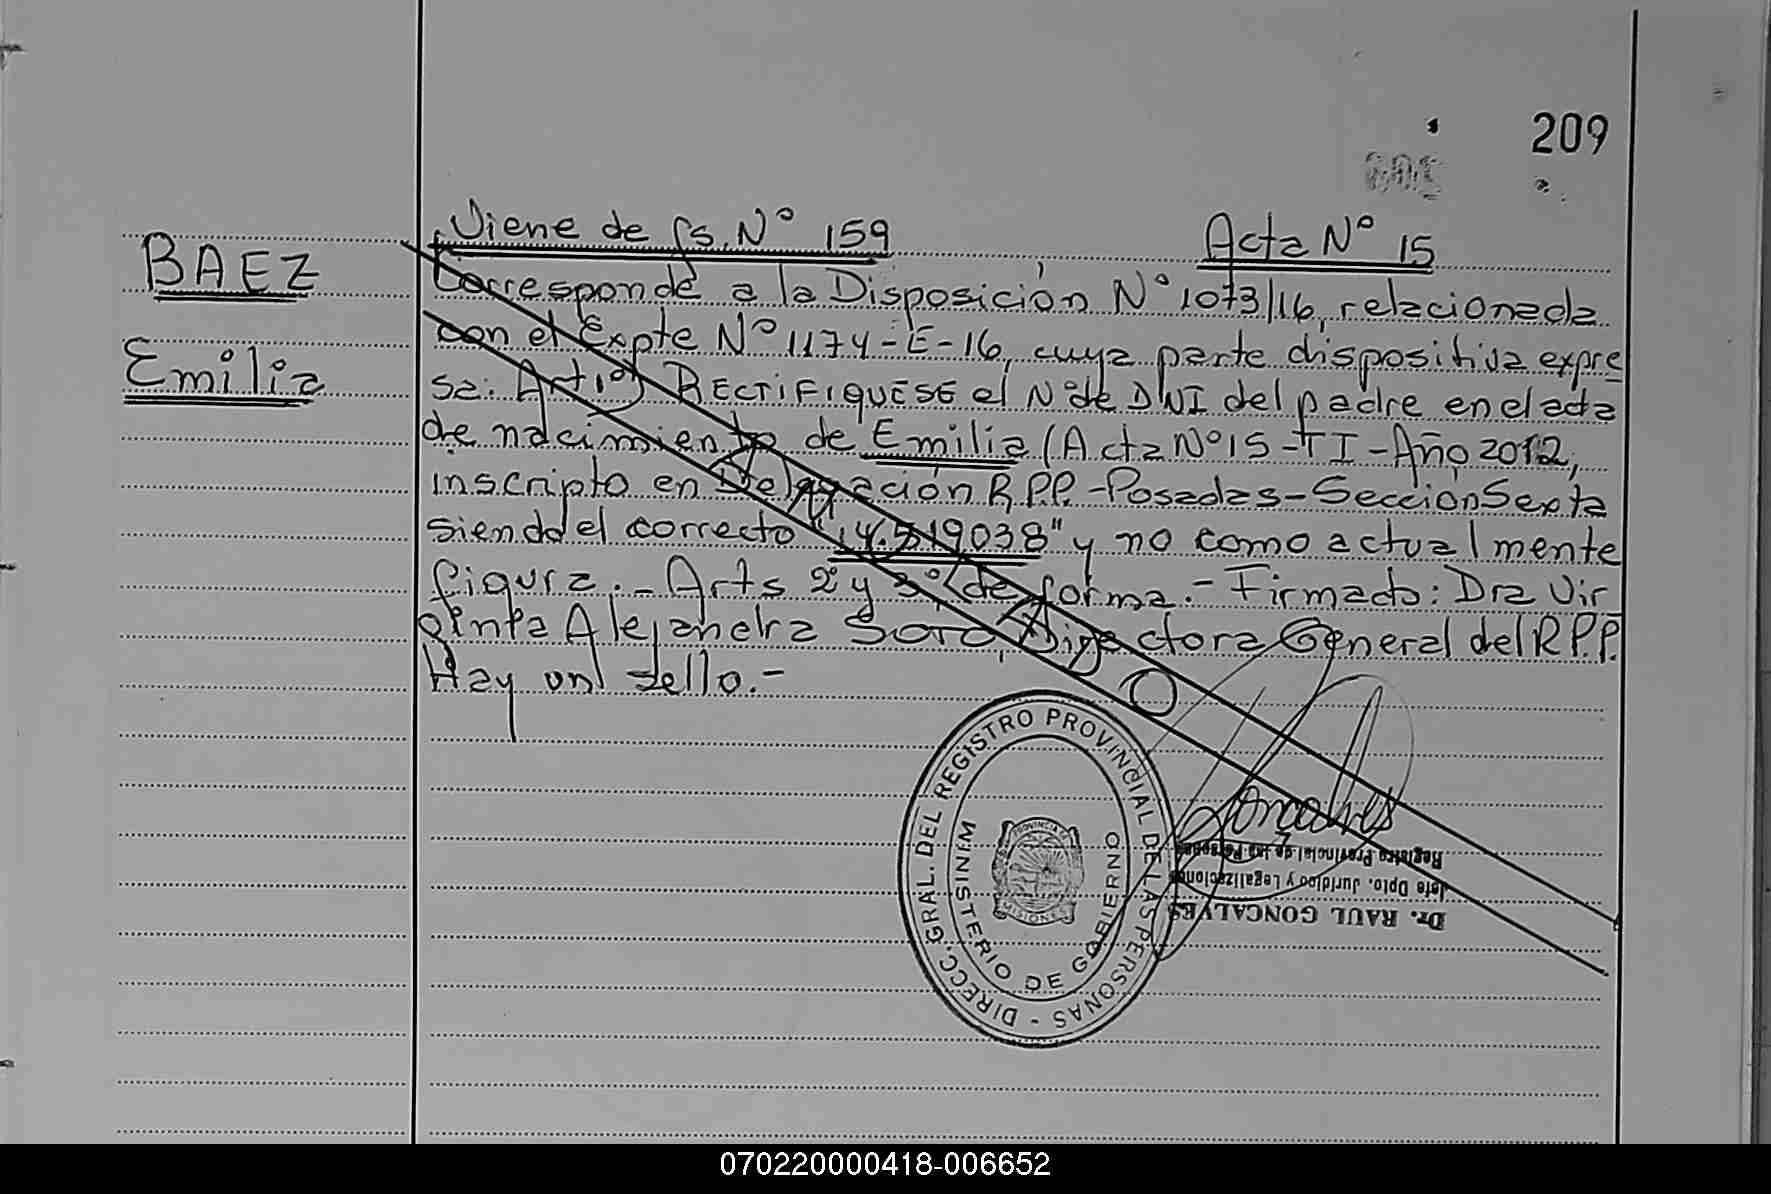 209
Viene de fs. Nº 159
Acta Nº 15
BAEZ
Emilia
Corresponde a la Disposición Nº 1073/16, relacionada
con el Expte Nº 1174-E-16, cuya parte dispositiva expre
sa: Art 1º) RECTIFIQUESE el Nº de DNI del padre en el acta
de nacimiento de Emilia (Acta Nº 15 - TI - Año 2012,
inscripto en Delegación R.P.P. - Posadas - Sección Sexta
siendo el correcto "14.519038" y no como actualmente
figura. - Arts 2º y 3º, de forma. - Firmado: Dra Vir
ginia Alejandra Soto, Directora General del R.P.P.
Hay un sello. -
ANULADO
DIRECC. GRAL. DEL REGISTRO PROVINCIAL DE LAS PERSONAS -
MINISTERIO DE GOBIERNO
PROVINCIA DE
MISIONES
Goncalves
Dr. RAUL GONCALVES
Jefe Dpto. Jurídico y Legalizaciones
Registro Provincial de las Personas
070220000418-006652